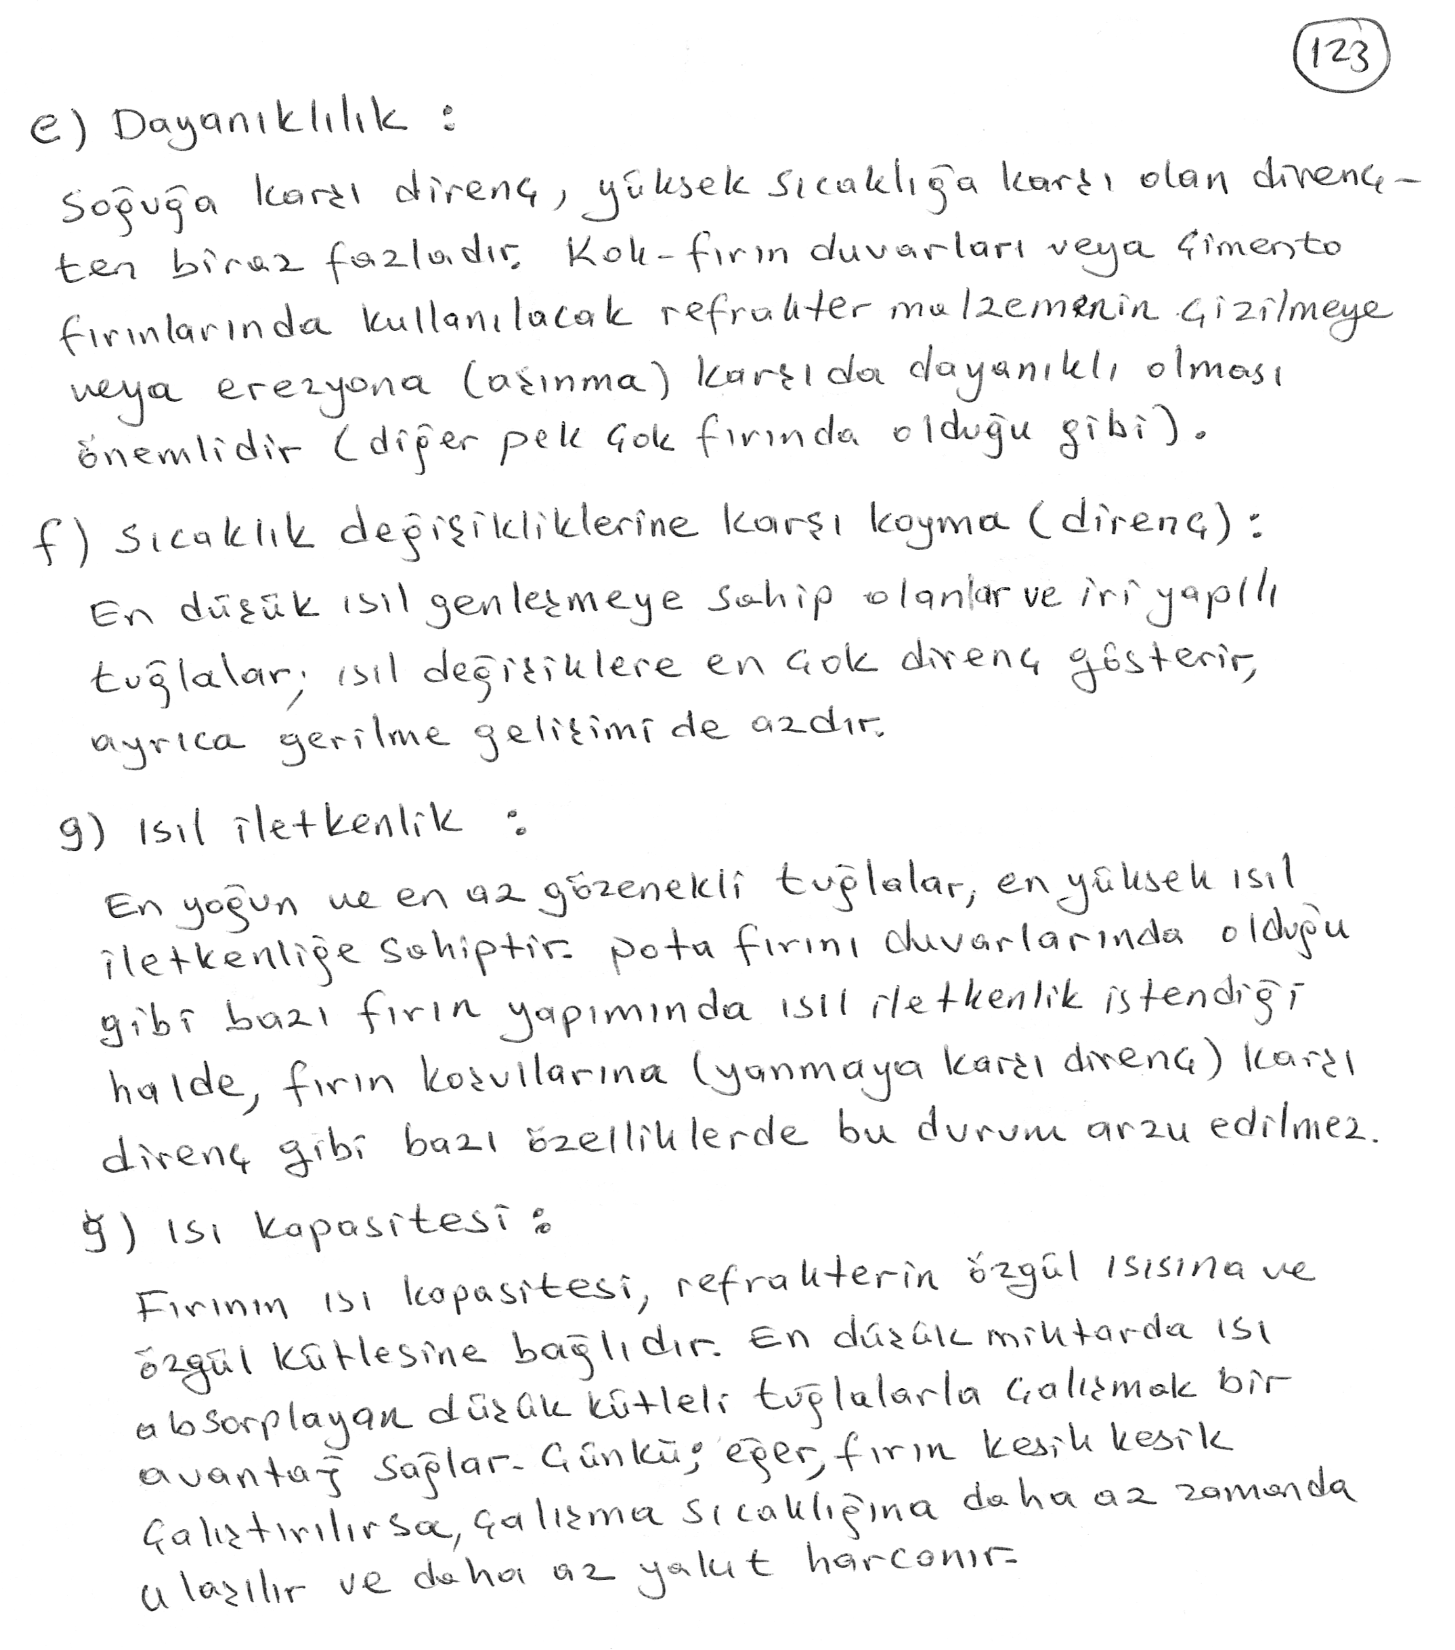 123
e) Dayanıklılık :
Soğuğa karşı direnç, yüksek sıcaklığa karşı olan direnç-
ten biraz fazladır. Kok-fırın duvarları veya çimento
fırınlarında kullanılacak refrakter malzemenin çizilmeye
veya erezyona (aşınma) karşıda dayanıklı olması
önemlidir (diğer pek çok fırında olduğu gibi).
f) Sıcaklık değişikliklerine karşı koyma (direnç) :
En düşük ısıl genleşmeye sahip olanlar ve iri yapılı
tuğlalar; ısıl değişiklere en çok direnç gösterir,
ayrıca gerilme gelişimi de azdır.
g) Isıl iletkenlik :
En yoğun ve en az gözenekli tuğlalar, en yüksek ısıl
iletkenliğe sahiptir. pota fırını duvarlarında olduğu
gibi bazı fırın yapımında ısıl iletkenlik istendiği
halde, fırın koşullarına (yanmaya karşı direnç) karşı
direnç gibi bazı özelliklerde bu durum arzu edilmez.
ğ) Isı kapasitesi :
Fırının ısı kapasitesi, refrakterin özgül ısısına ve
özgül kütlesine bağlıdır. En düşük miktarda ısı
absorplayan düşük kütleli tuğlalarla çalışmak bir
avantaj sağlar. Çünkü; eğer, fırın kesik kesik
çalıştırılırsa, çalışma sıcaklığına daha az zamanda
ulaşılır ve daha az yakıt harcanır.